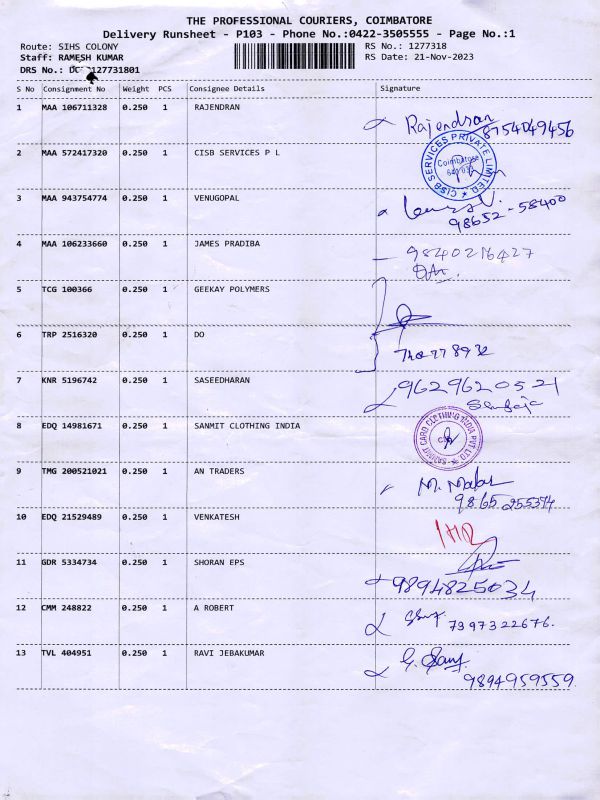 THE PROFESSIONAL COURIERS, COIMBATORE
Delivery Runsheet - P103 - Phone No.:0422-3505555 - Page No.:1
Route: SIHS COLONY RS No.: 1277318
Staff: RAMESH KUMAR RS Date: 21-Nov-2023
DRS No.: 127731801
S No Consignment No Weight PCS Consignee Details Signature
1 MAA 106711328 0.250 1 RAJENDRAN Rajendran
8754049456
2 MAA 572417320 0.250 1 CISB SERVICES P L CISB SERVICES PRIVATE LIMITED Coimbatore
3 MAA 943754774 0.250 1 VENUGOPAL
98652-58400
4 MAA 106233660 0.250 1 JAMES PRADIBA 9840216427
5 TCG 100366 0.250 1 GEEKAY POLYMERS
6 TRP 2516320 0.250 1 DO
7 KNR 5196742 0.250 1 SASEEDHARAN 9629620521
8 EDQ 14981671 0.250 1 SANMIT CLOTHING INDIA
9 TMG 200521021 0.250 1 AN TRADERS
10 EDQ 21529489 0.250 1 VENKATESH
11 GDR 5334734 0.250 1 SHORAN EPS
9894825034
12 CMM 248822 0.250 1 A ROBERT 7397322676.
13 TVL 404951 0.250 1 RAVI JEBAKUMAR
9894959559